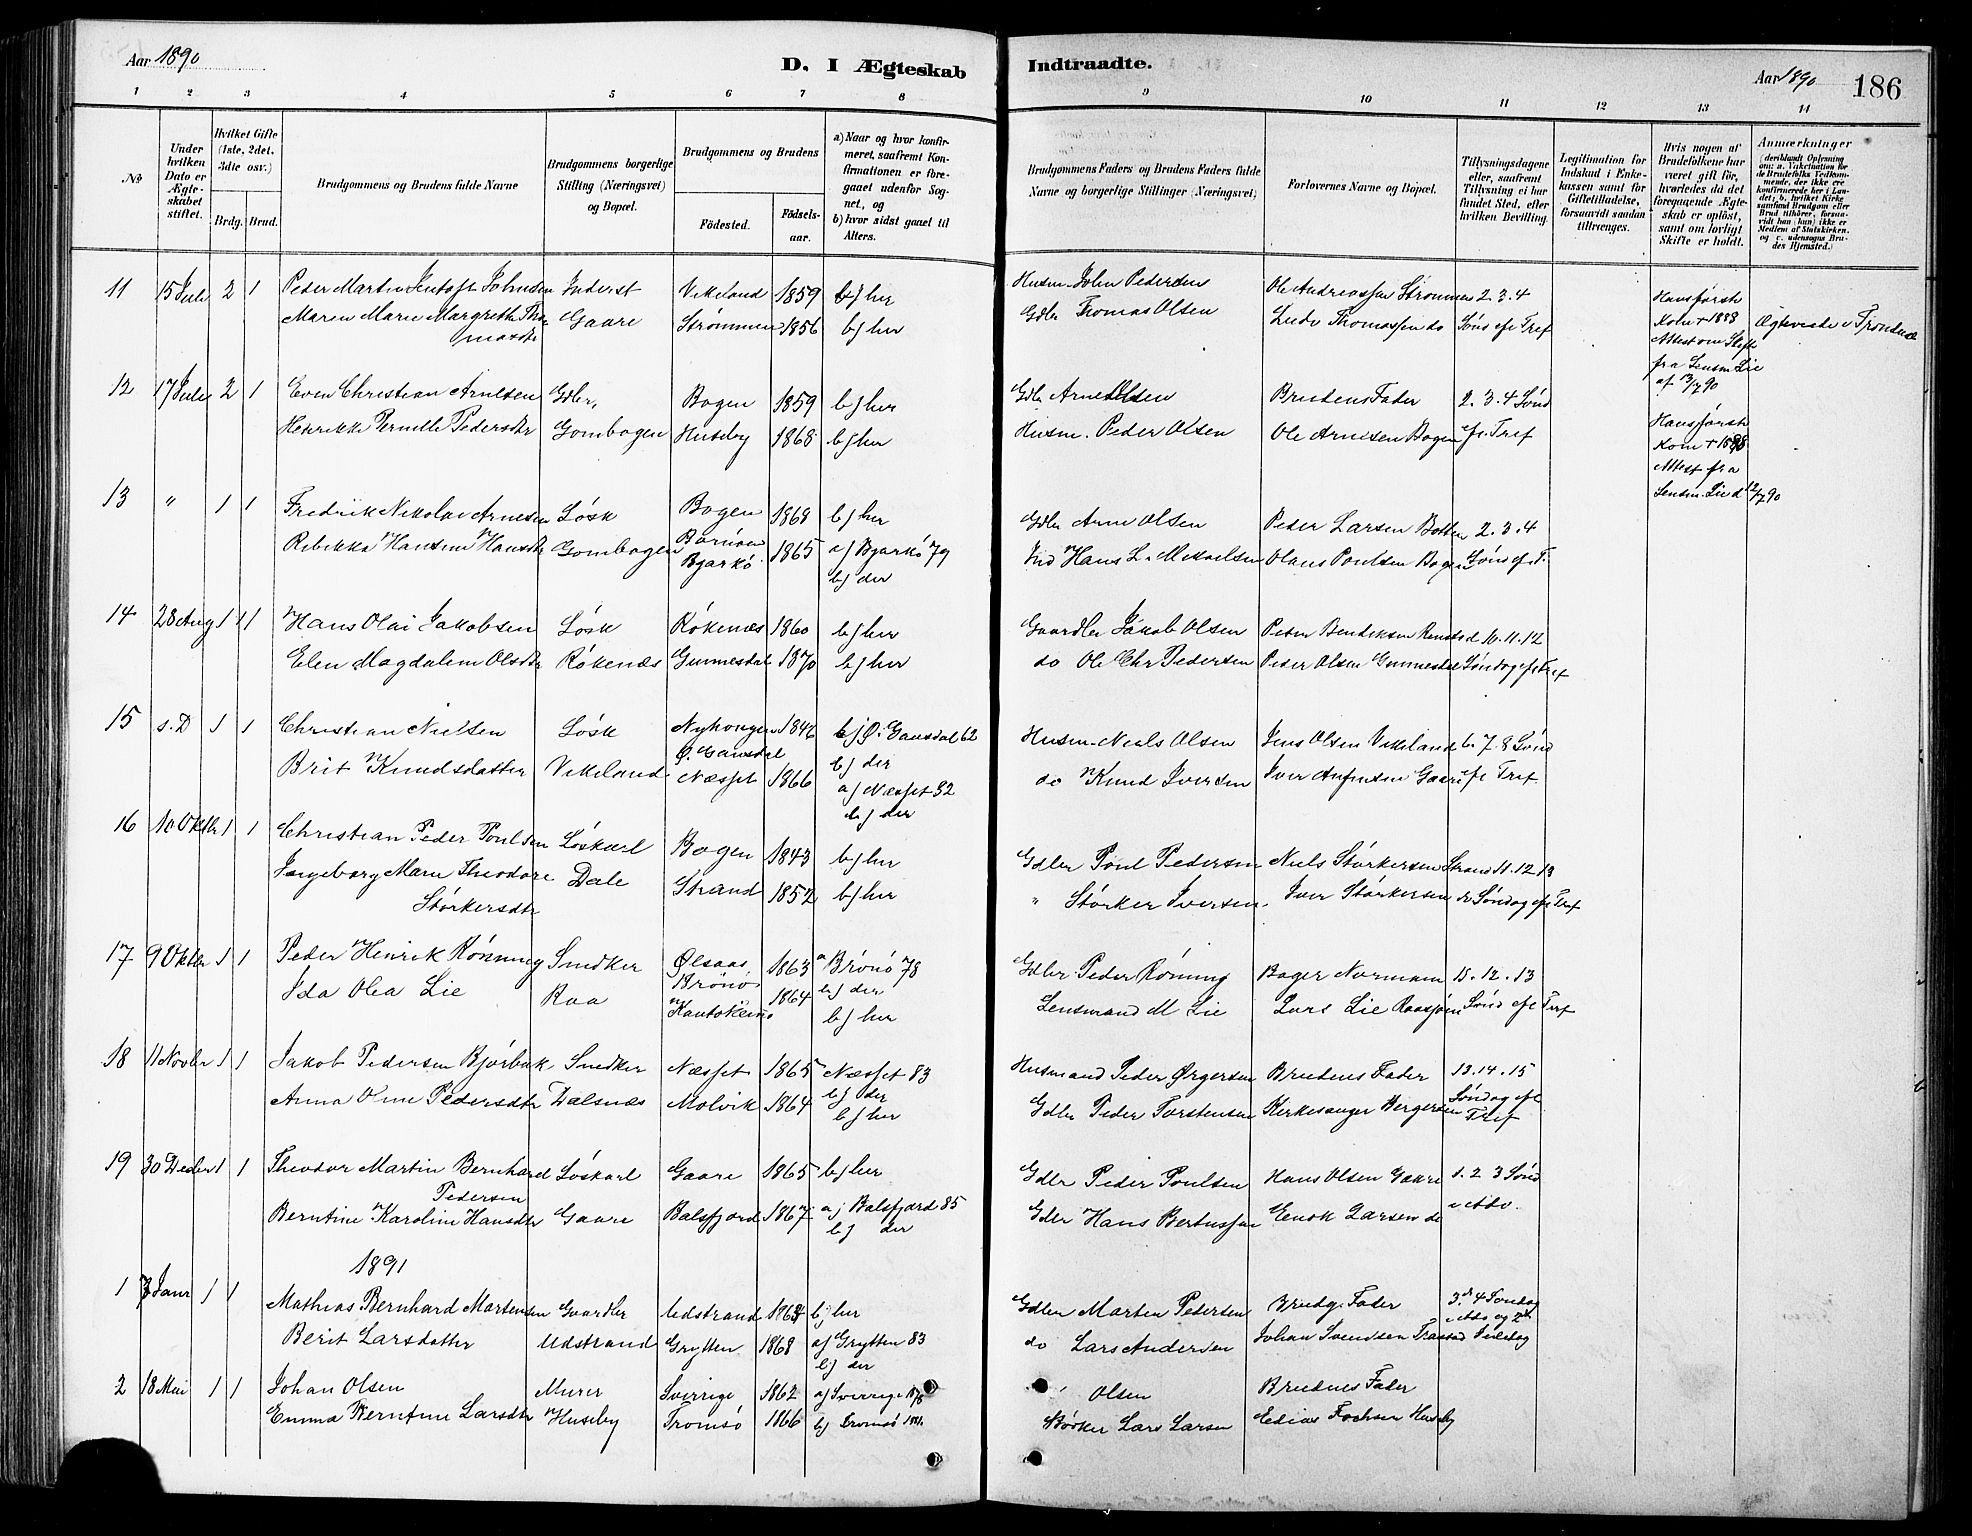 Aar 1890
D. I Ægteskab Indtraadte.
Aar 1890 186
1 2 3 4 5 6 7 8 9 10 11 12 13 14
№
Under hvilken Dato er Ægteskabet stiftet.
Hvilket Gifte (1ste, 2det, 3die osv.)
Brdg. Brud.
Brudgommens og Brudens fulde Navne
Brudgommens borgerlige Stilling (Næringsvei) og Bopæl.
Brudgommens og Brudens
Fødested.
Fødselsaar.
a) Naar og hvor konfirmeret, saafremt Konfirmationen er foregaaet udenfor Sognet, og
b) hvor sidst gaaet til Alters.
Brudgommens Faders og Brudens Faders fulde Navne og borgerlige Stillinger (Næringsvei)
Forlovernes Navne og Bopæl.
Tillysningsdagene eller, saafremt Tillysning ei har fundet Sted, efter hvilken Bevilling.
Legitimation for Indskud i Enkekassen samt for Giftetilladelse, forsaavidt saadan tiltrænges.
Hvis nogen af Brudefolkene har været gift før, hvorledes da det foregaaende Ægteskab er opløst, samt om lovligt Skifte er holdt.
Anmærkninger
(deriblandt Oplysning om: a. Vakcination for de Brudefolks Vedkommende, der ikke ere konfirmerede her i Landet; b. hvilket Kirkesamfund Brudgom eller Brud tilhører, forsaavidt han (hun) ikke er Medlem af Statskirken, og c. udensogns Brudes Hjemsted.)
11 15 Juli 2 1 Peder Martin Johnsen Inderst Vikeland 1859 b) her Husm. John Pedersen Ole Andreassen Strømmen 2. 3. 4
Maren Marie Margrethe Thomasdtr Gaare Strømmen 1856 b) her Gdbr Thomas Olsen Ludv Thomassen do Sønd eft Tref
Hans første Kone + 1888 Attest om Skifte fra Lensm. Lie af 13/7 90
12 17 Juli 2 1 Even Christian Arntsen Gdbr, Bogen 1859 b) her Gdb Arne Olsen Brudens Fader 2. 3. 4 Sønd
Henrikke Pernille Pedersdtr Gombogen Huseby 1868 b) her Husm. Peder Olsen Ole Arntsen Bogen eft. Tref
Hans første Kone + 1888 Attest fra Lensm. Lie d 12/7 90
13 " 1 1 Fredrik Nikolai Arnesen Løsk Bogen 1868 b) her Gdbr Arne Olsen Peder Larsen Botten 2. 3. 4
Rebikka Hansine Hansdtr Gombogen Bjarkø 1865 a) Bjarkø 79 Ind Hans L. Mikaelsen Olaus Poulsen Bogen Sønd eft T.
b) der
14 28 Aug 1 1 Hans Olai Jakobsen Løsk Røkenæs 1860 b) her Gaardbr Jakob Olsen Peder Bendiksen 10. 11. 12
Elen Magdalene Olsdtr Røkenæs Gunnesdal 1870 b) her do Ole Chr Pedersen Peder Olsen Gunnesdal Søndag eft Tref
15 s. D 1 1 Christian Nielsen Løsk Ø. Gausdal 1846 b) Ø. Gausdal 62 Husm. Niels Olsen Jens Olsen Vikeland 6. 7. 8 Sønd
b) der
Brit Knudsdatter Vikeland Næsset 1866 a) Næsset 82 do Knud Iversen Iver Gaare eft Tref.
b) der
16 10 Oktbr 1 1 Christian Peder Poulsen Løskarl Bogen 1843 b) her Gdbr Poul Pedersen Niels Størkersen Strand 11. 12. 13
Ingeborg Marie Theodore Størkersdtr Dale Strand 1852 b) her " Størker Iversen Iver Størkersen do Søndag eft Tref
17 9 Oktbr 1 1 Peder Henrik Rønning Snedker Brønø 1863 a Brønø 78 Gdbr Peder Rønning Bager Normann 11. 12. 13
b) der
Ida Olea Lie Raa Kautokeino 1864 b) her Lensmand M Lie Lars Lie Sønd eft Tref
18 11 Novbr 1 1 Jakob Pedersen Bjørbæk Snedker Næsset 1865 Næsset 83 Husmand Peder Brudens Fader 13. 14. 15
b) der
Anna Oline Pedersdtr Dalsnæs Molvik 1864 b) her Gdbr Peder Torstensen Kirkesanger Bergersen Søndag eft Tref
19 30 Decbr 1 1 Theodor Martin Bernhard Pedersen Løskarl Gaare 1865 b) her Gdbr Peder Poulsen Hans Olsen Gaare 1. 2 3 Sønd
Berntine Karoline Hansdtr Gaare Balsfjord 1867 a) Balsfjord 85 Gdbr Hans Bertussen Enok Larsen do i Adv.
b) der
1891
1 3 Janr 1 1 Mathias Bernhard Martensen Gaardbr Udstrand b) her Gdbr Marten Pedersen Brudg. Fader 3. & 4 Søndag i Adv og 2den Juledag
Berit Larsdatter Udstrand Grytten 1868 a) Grytten 83 do Lars Andersen Johan Svendsen Trastad
b) der
2 18 Mai 1 1 Johan Olsen Murer Sverrige 1862 a) Sverrige Olsen Brudens Fader
Emma Berntine Larsdtr Huseby Tromsø 1866 b) Tromsø Bødker Lars Larsen Edias Huseby